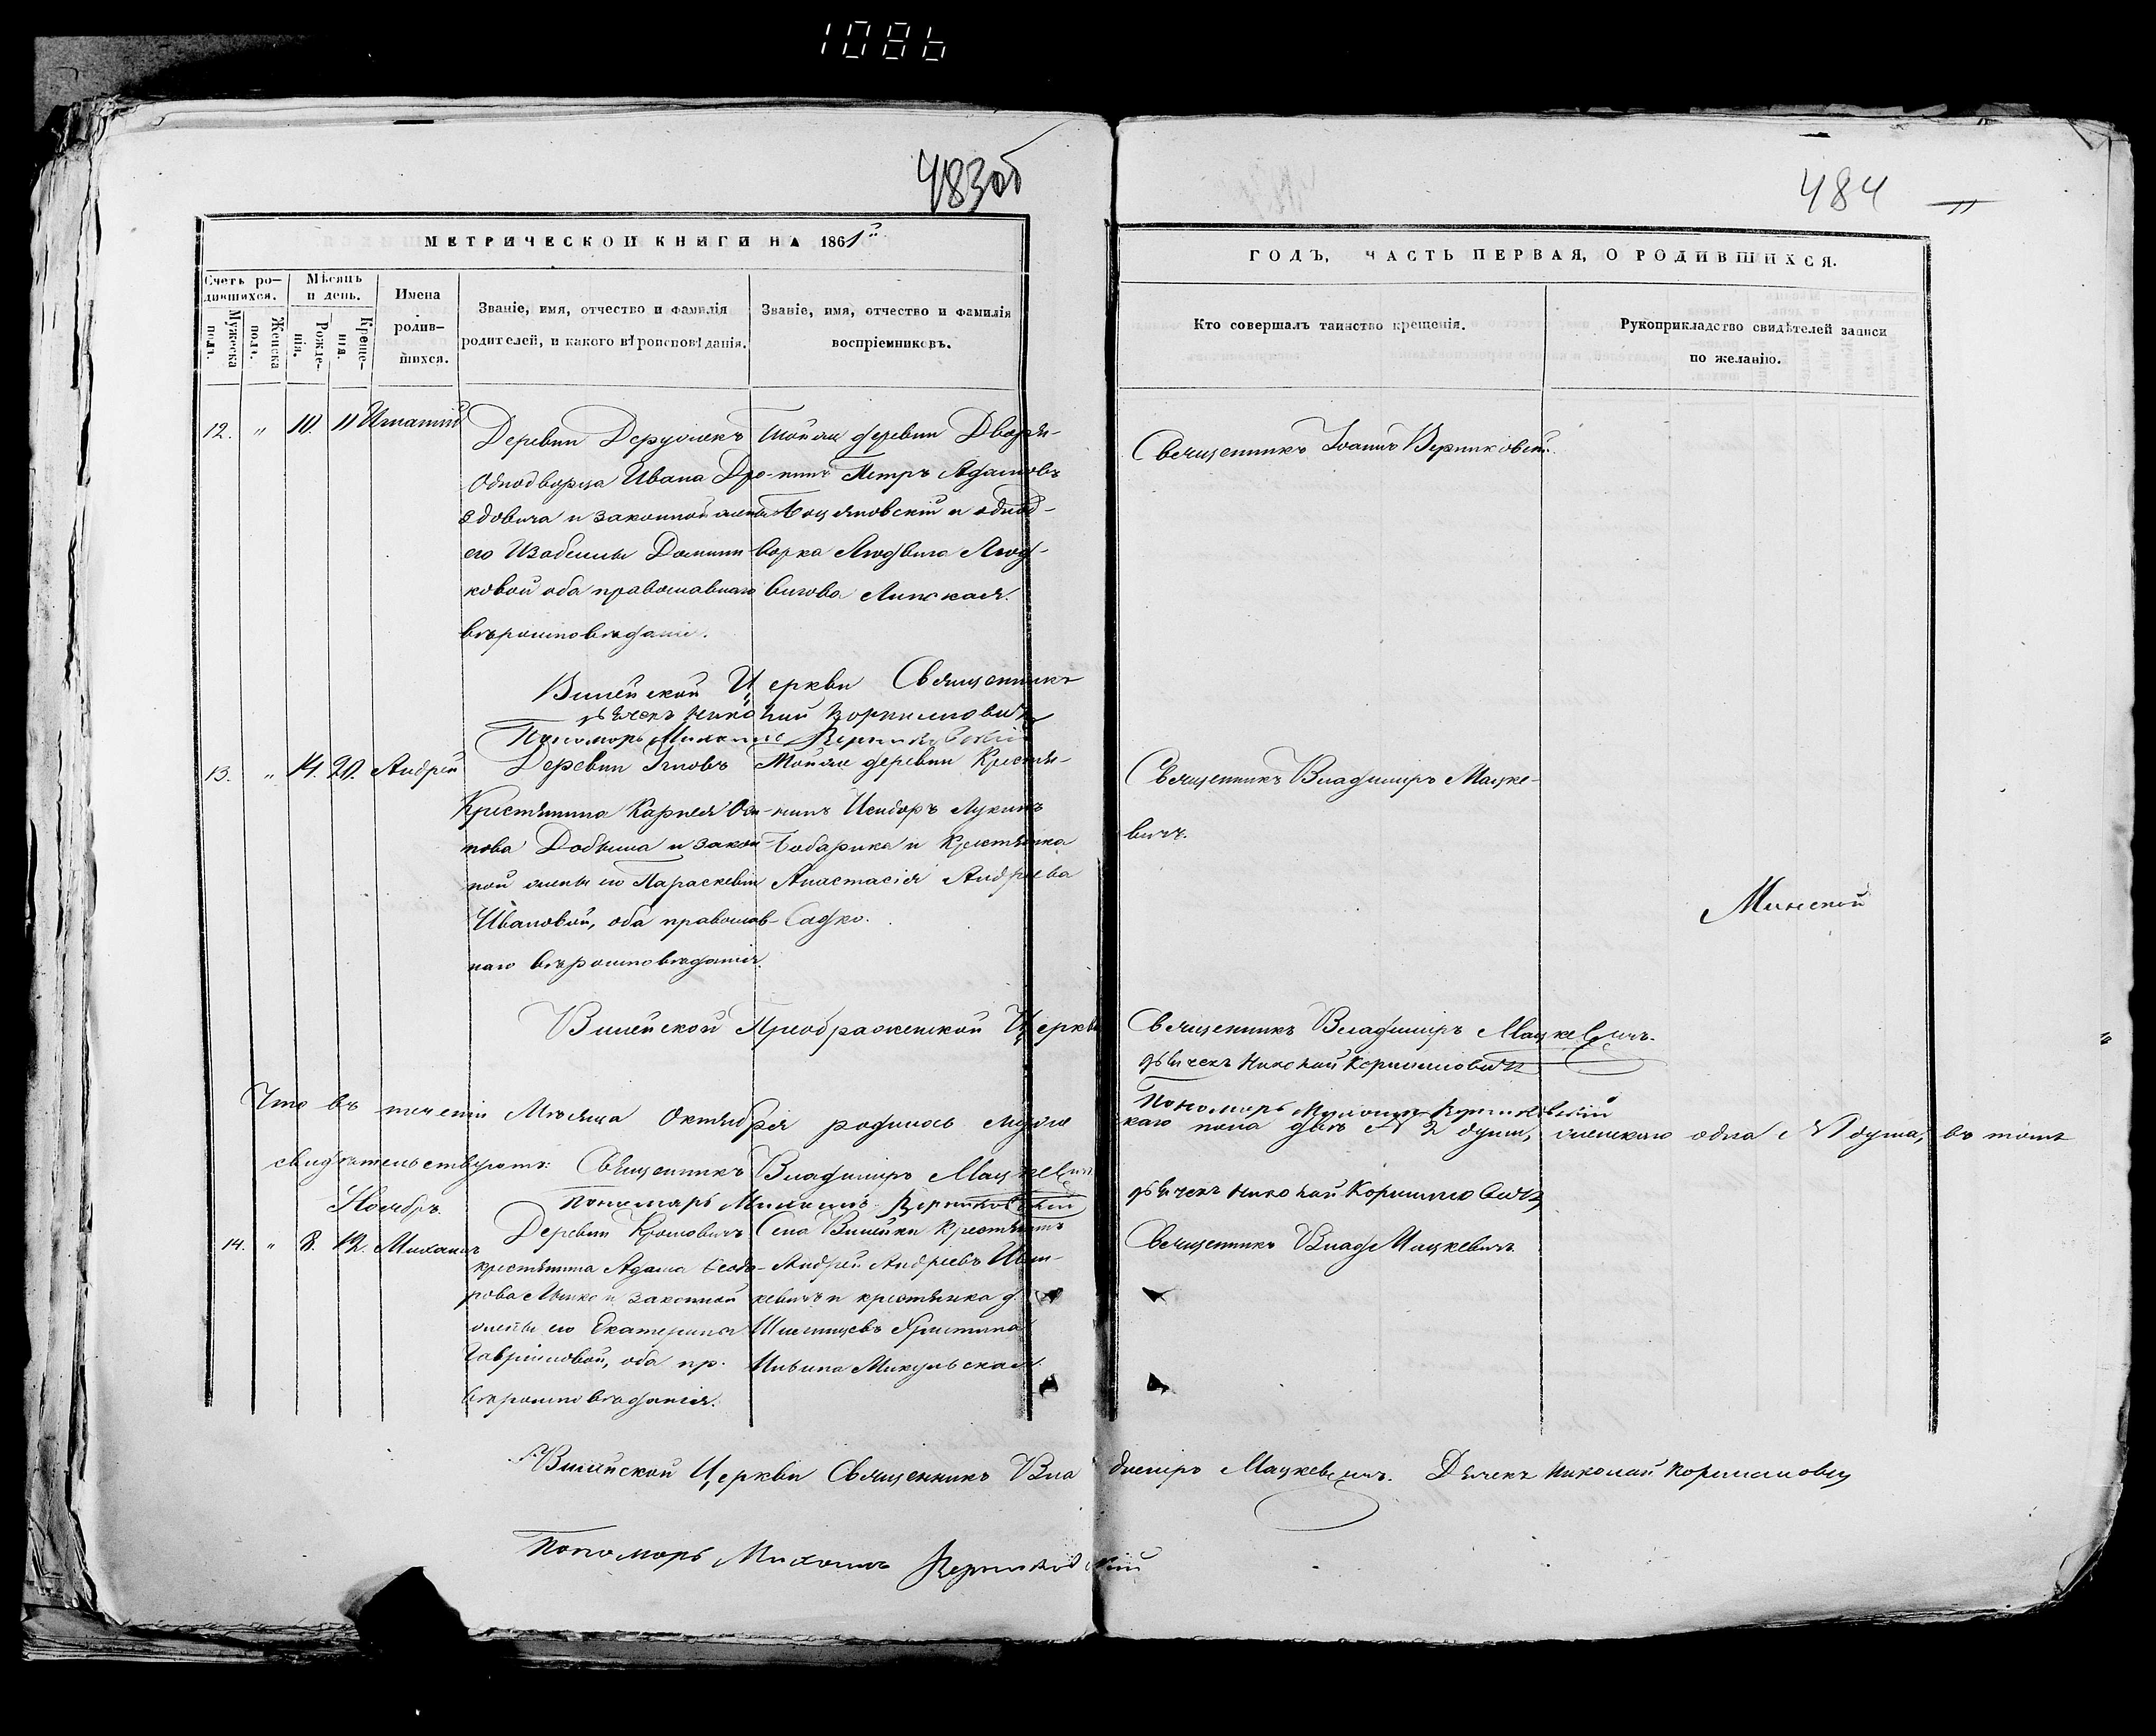 1086
483об
484
МЕТРИЧЕСКОЙ КНИГИ НА 1861й
ГОДЪ, ЧАСТЬ ПЕРВАЯ, О РОДИВШИХСЯ.
Счетъ ро-
дившихся.
Мужеска
полъ.
Женска
полъ.
Мѣсяцъ
и день.
Рожде-
нія.
Креще-
нія.
Имена
родив-
шихся.
Званіе, имя, отчество и фамилія
родителей, и какого вѣроисповѣданія.
Званіе, имя, отчество и фамилія
воспріемниковъ.
Кто совершалъ таинство крещенія.
Рукоприкладство свидѣтелей записи
по желанію.
12. " 10. 11 Игнатій
Деревни
Однодворца Ивана Дро-
здовича и законной жены
его Изабеллы Домини-
ковой оба православнаго
вѣроисповѣданія.
Тойже деревни Дворя-
нинъ Петръ Адамовъ
и однод-
ворка Людвига Люд-
вигова Липская.
Священникъ Іоаннъ Верниковскій.
Вилейской Церкви Священникъ
дьячекъ Николай Корнилович
Пономарь Михаилъ Верниковскій
13. " 14. 20. Андрей
Деревни
Крестьянина Карпея Оси-
пова и закон-
ной жены его Параскевіи
Ивановой, оба православ-
наго вѣроисповѣданія.
Тойже деревни Крестья-
нинъ Исидоръ Лукинъ
Бобарика и Крестьянка
Анастасія Андреева
Садко.
Священникъ Владиміръ Мацке-
вичъ.
Минской
Вилейской Преображенской Церкви Священникъ Владиміръ Мацкевичъ.
дьячекъ Николай Корнилович
Пономарь Михаилъ Верниковскій
Что въ теченіи Мѣсяца Октября родилось мужес-
каго пола двѣ 2 души, женскаго одна 1 душа, въ томъ
свидѣтельствуютъ: Священникъ Владиміръ Мацкевичъ
дьячекъ Николай Корнилович
Пономарь Михаилъ Верниковскій
Ноябрь.
14. " 8. 12. Михаилъ
Деревни
крестьянина Адама Ѳеодо-
рова и законной
жены его Екатерины
Гавріиловой, оба пр.
вѣроисповѣданія.
Села Вилейки Крестьянинъ
Андрей Андреевъ
и крестьянка д.
Христина
Ильина Микульская.
Священникъ Влад Мацкевичъ
Вилейской Церкви Священникъ Владиміръ Мацкевичъ. Дьячекъ Николай Корнилович
Пономарь Михаилъ Верниковскій